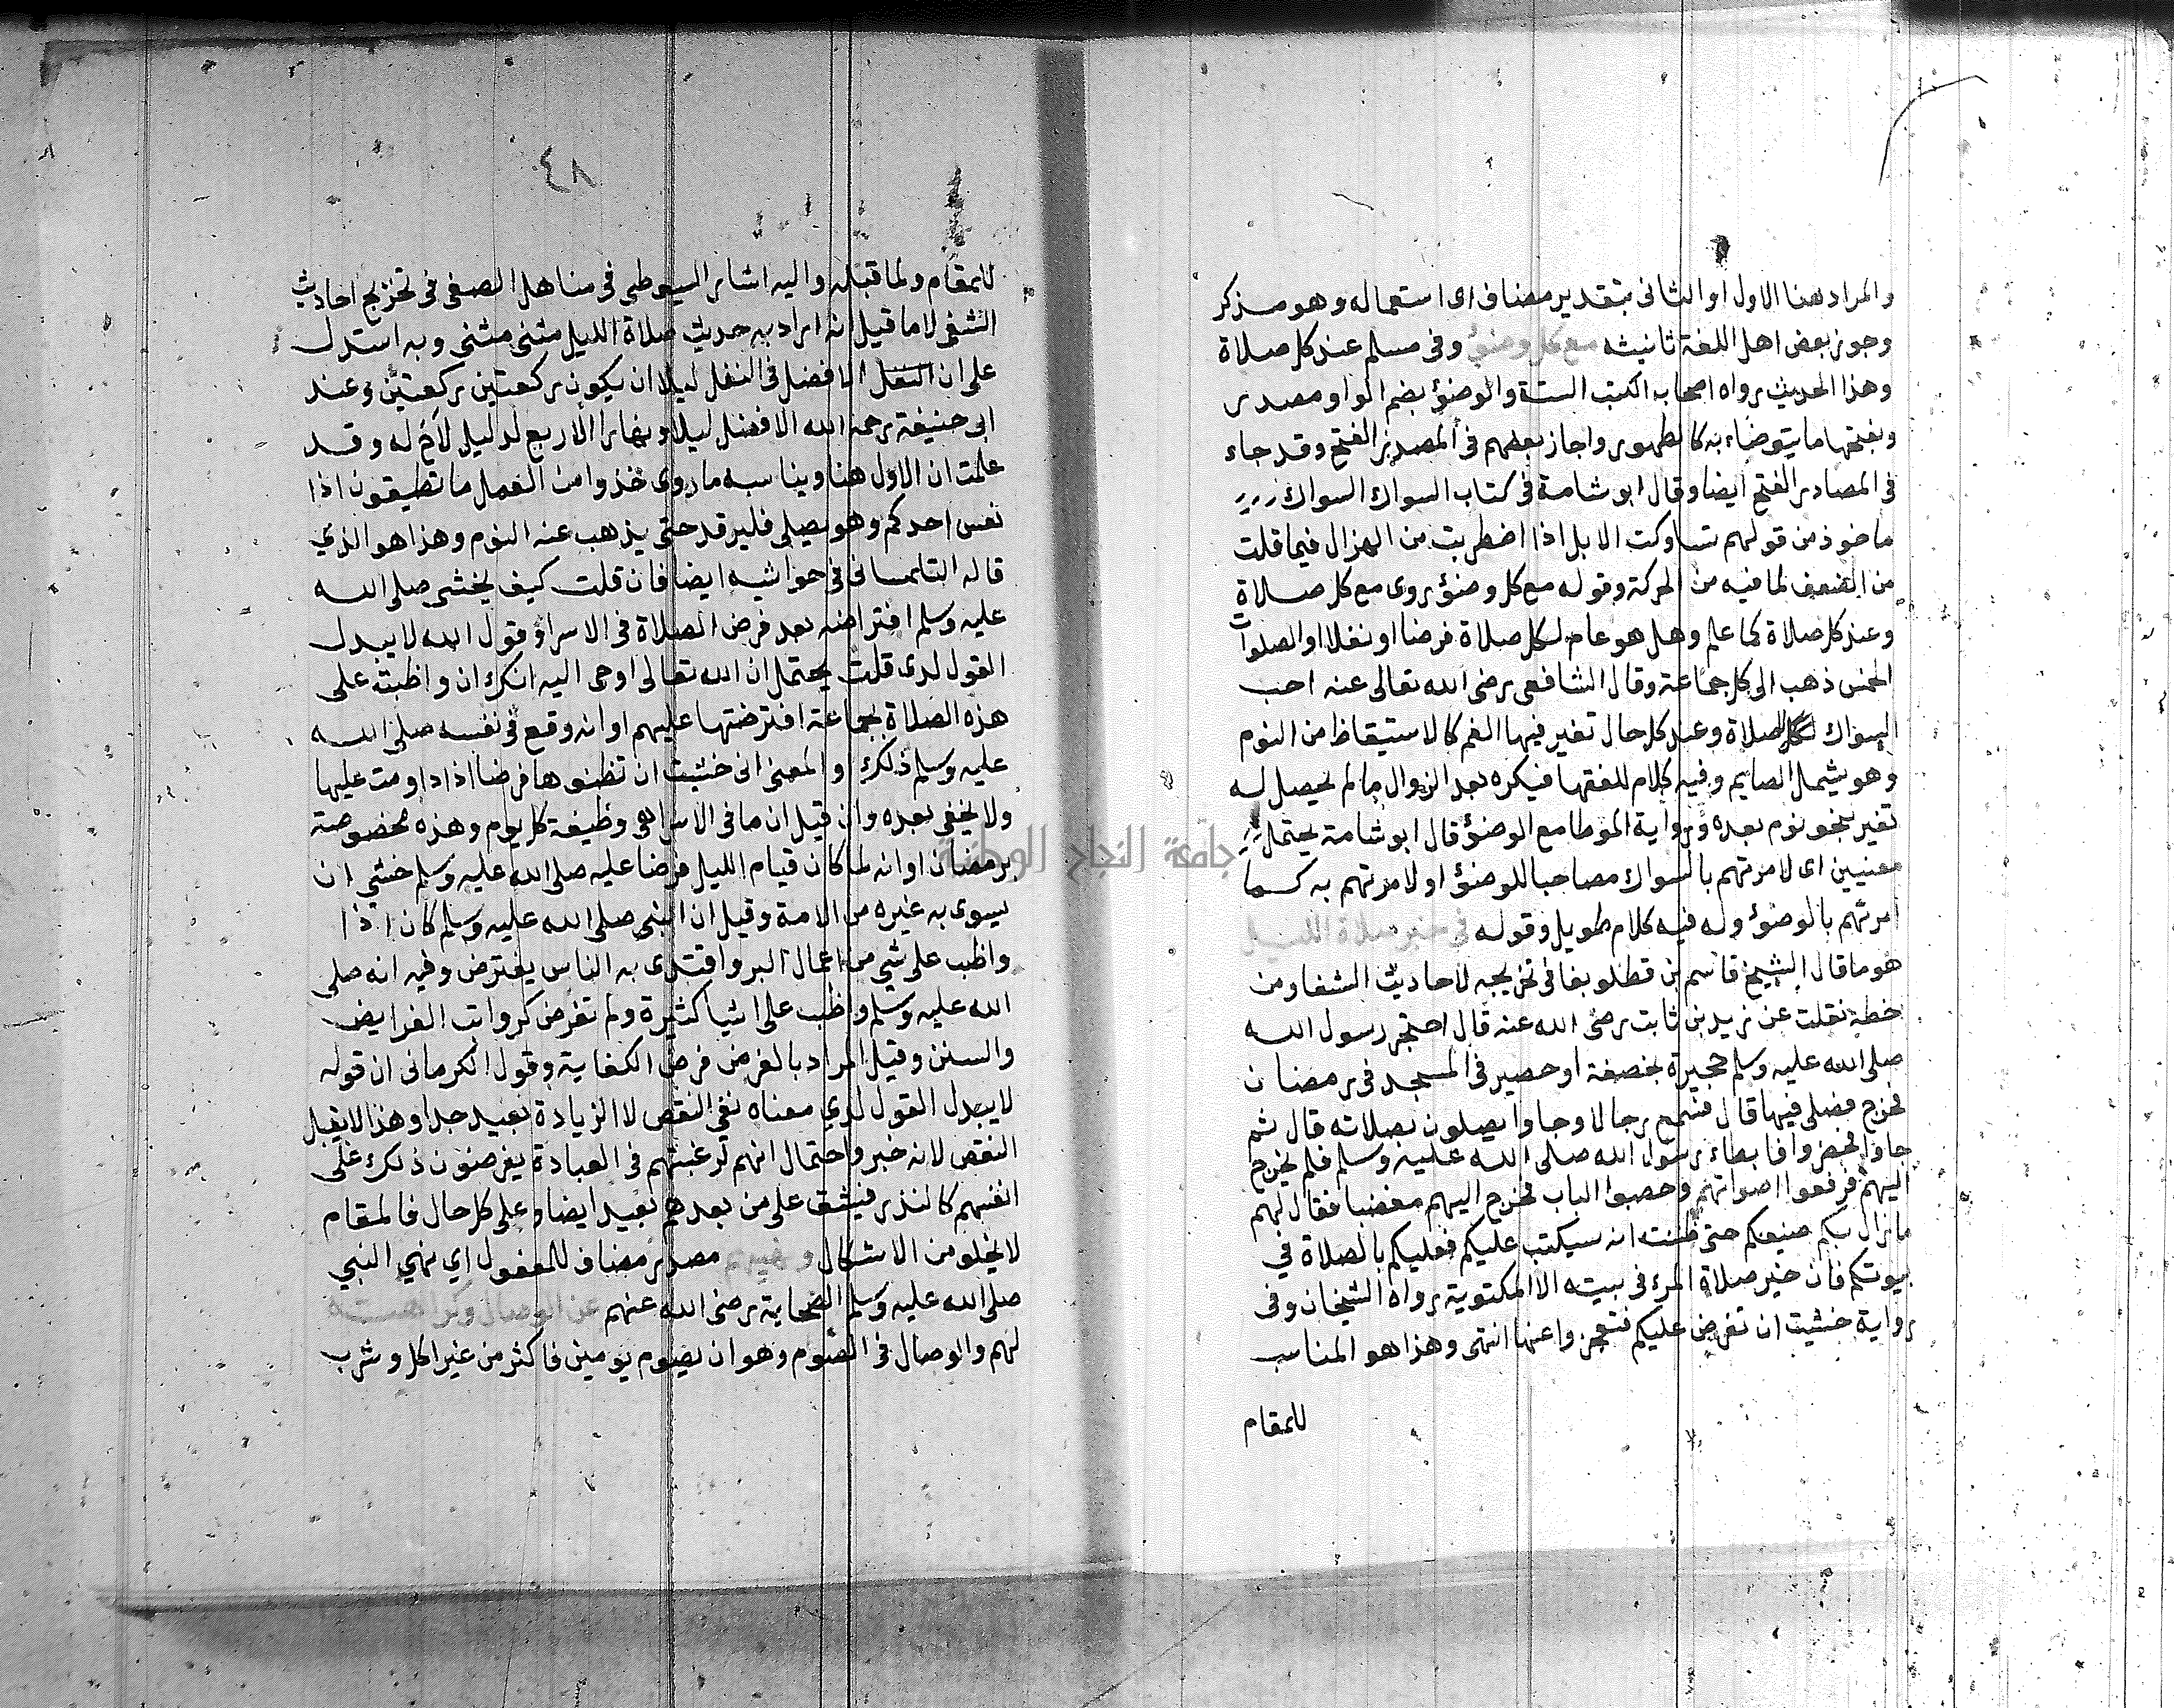 والمراد هنا الاول او الثانى بتقدير مضاف اى استعماله وهو مذكر
وجوز بعض اهل اللغة تانيثه مع كل وضوء وفى مسلم عند كل صلاة
وهذا الحديث رواه اصحاب الكتب الستة والوضوء بضم الواو مصدر
وبفتحها ما يتوضاء به كالطهور واجاز بعضهم فى المصدر الفتح وقد جاء
فى المصادر الفتح ايضا وقال ابو شامة فى كتاب السواك السواك
ماخوذ من قولهم تساوكت الابل اذا اضطربت من الهزال فيما قلت
من الضعف لما فيه من الحركة وقوله مع كل وضوء روى مع كل صلاة
وعند كل صلاة كما علم وهل هو عام لكل صلاة فرضا او نفلا او الصلوات
الخمس ذهب الى كل جماعة وقال الشافعى رضى الله تعالى عنه احب
السواك لكل الصلاة وعند كل حال تغير فيها الفم كالاستيقاظ من النوم
وهو يشمل الصايم وفيه كلام للفقها فيكره بعد الزوال ما لم يحصل له
تغير بنحو نوم بعده ورواية الموطا مع الوضوء قال ابو شامة يحتمل
معنيين اى لامرتهم بالسواك مصاحبا للوضوء او لامرتهم به كما
امرتهم بالوضوء وله فيه كلام طويل وقوله فى خبر صلاة الليل
هو ما قال الشيخ قاسم بن قطلوبغا فى تخريجه لاحاديث الشفا ومن
خطه نقلت عن زيد بن ثابت رضى الله عنه قال احتجر رسول الله
صلى الله عليه وسلم حجيرة بخصفة او حصير فى المسجد فى رمضان
فخرج فصلى فيها قال فتتبع رجالا وجاوا يصلون بصلاته قال ثم
جاوا فحضروا فابطاء رسول الله صلى الله عليه وسلم فلم يخرج
اليهم فرفعوا اصواتهم وحصبوا الباب فخرج اليهم مغضبا فقال لهم
ما زال بكم صنيعكم حتى ظننت انه سيكتب عليكم فعليكم بالصلاة في
بيوتكم فان خير صلاة المرء فى بيته الا المكتوبة رواه الشيخان وفى
رواية خشيت ان تفرض عليكم فتعجزوا عنها انتهى وهذا هو المناسب
للمقام
٨٤
للمقام ولما قبله واليه اشار السيوطى فى مناهل الصفى فى تخريج احاديث
الشفى لا ما قيل انه اراد به حديث صلاة الليل مثنى مثنى وبه استدل
على ان النفل الافضل فى النفل ليلا ان يكون ركعتين ركعتين وعند
ابى حنيفة رحمه الله الافضل ليلا ونهارا الاربع لدليل لأم له وقد
علمت ان الاول هنا ويناسبه ما روى خذوا من العمل ما تطيقون اذا
نعس احدكم وهو يصلى فليرقد حتى يذهب عنه النوم وهذا هو الذي
قاله التلمسانى فى حواشيه ايضا فان قلت كيف يخشى صلى الله
عليه وسلم افتراضه بعد فرض الصلاة فى الاسراء وقول الله لا يبدل
القول لدى قلت يحتمل ان الله تعالى اوحى اليه انك ان واظبت على
هذه الصلاة بجماعة افترضتها عليهم او انه وقع فى نفسه صلى الله
عليه وسلم ذلك او المعنى انى خشيت ان تظنوها فرضا اذا داومت عليها
ولا يخفى بعده وان قيل ان ما فى الاسرا هى وظيفة كل يوم وهذه مخصوصة
برمضان او انه لما كان قيام الليل فرضا عليه صلى الله عليه وسلم خشي ان
يسوى به غيره من الامة وقيل ان النبى صلى الله عليه وسلم كان اذا
واظب على شي من اعمال البر واقتدى به الناس يفترض وفيه انه صلى
الله عليه وسلم واظب على اشيا كثيرة ولم تفرض كرواتب الفرايض
والسنن وقيل المراد بالفرض فرض الكفاية وقول الكرمانى ان قوله
لا يبدل القول لدي معناه نفى النقص لا الزيادة بعيد جدا وهذا لا يقبل
النقص لانه خبر واحتمال انهم لرغبتهم فى العبادة يفرضون ذلك على
انفسهم كالنذر فيشق على من بعدهم بعيد ايضا وعلى كل حال فالمقام
لا يخلو من الاشكال ونهيه مصدر مضاف للمفعول اي نهي النبي
صلى الله عليه وسلم الصحابة رضى الله عنهم عن الوصال وكراهته
لهم والوصال فى الصوم وهو ان يصوم يومين فاكثر من غير اكل وشرب
جامعة النجاح الوطنية